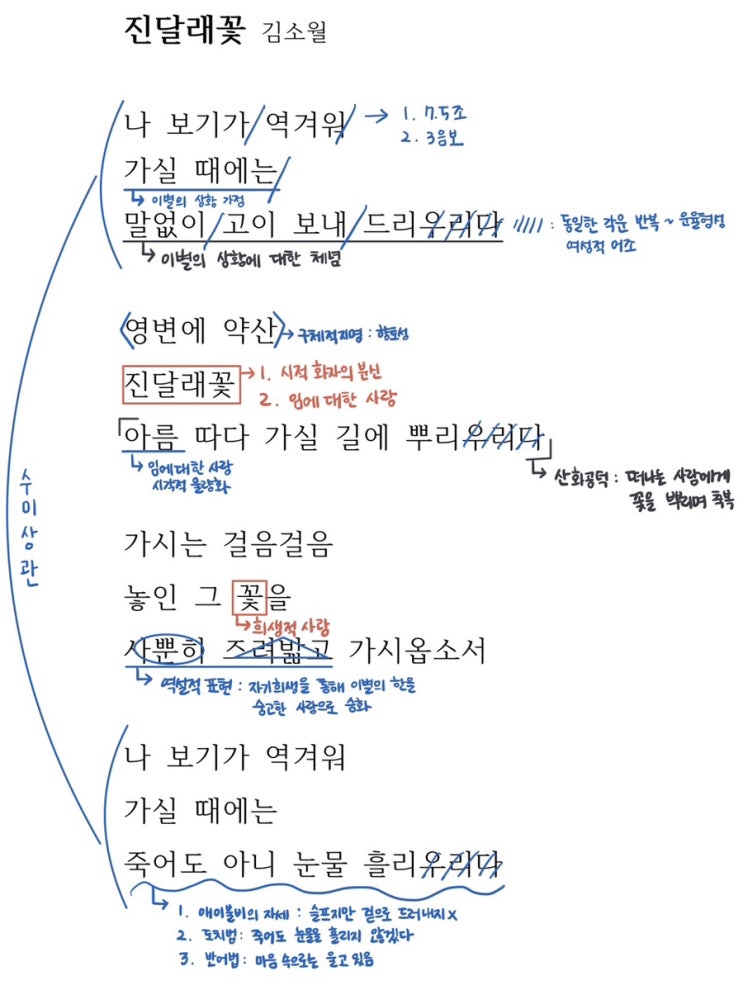 진달래꽃 김소월
나 보기가 역겨워
→ 1. 7.5조
2. 3음보
가실 때에는
이별의 상황 가정
말없이 고이 보내 드리우리다
: 동일한 각운 반복 ~ 운율형성
여성적 어조
이별의 상황에 대한 체념
영변에 약산
구체적지명 : 향토성
진달래꽃
1. 시적 화자의 분신
2. 임에 대한 사랑
아름 따다 가실 길에 뿌리우리다
임에대한 사랑
시각적 물량화
산화공덕 : 떠나는 사람에게
꽃을 뿌리며 축복
수미상관
가시는 걸음걸음
놓인 그 꽃을
희생적 사랑
사뿐히 즈려밟고 가시옵소서
역설적 표현 : 자기희생을 통해 이별의 한을
숭고한 사랑으로 승화
나 보기가 역겨워
가실 때에는
죽어도 아니 눈물 흘리우리다
1. 애이불비의 자세 : 슬프지만 겉으로 드러내지 x
2. 도치법 : 죽어도 눈물을 흘리지 않겠다
3. 반어법 : 마음 속으로는 울고 있음